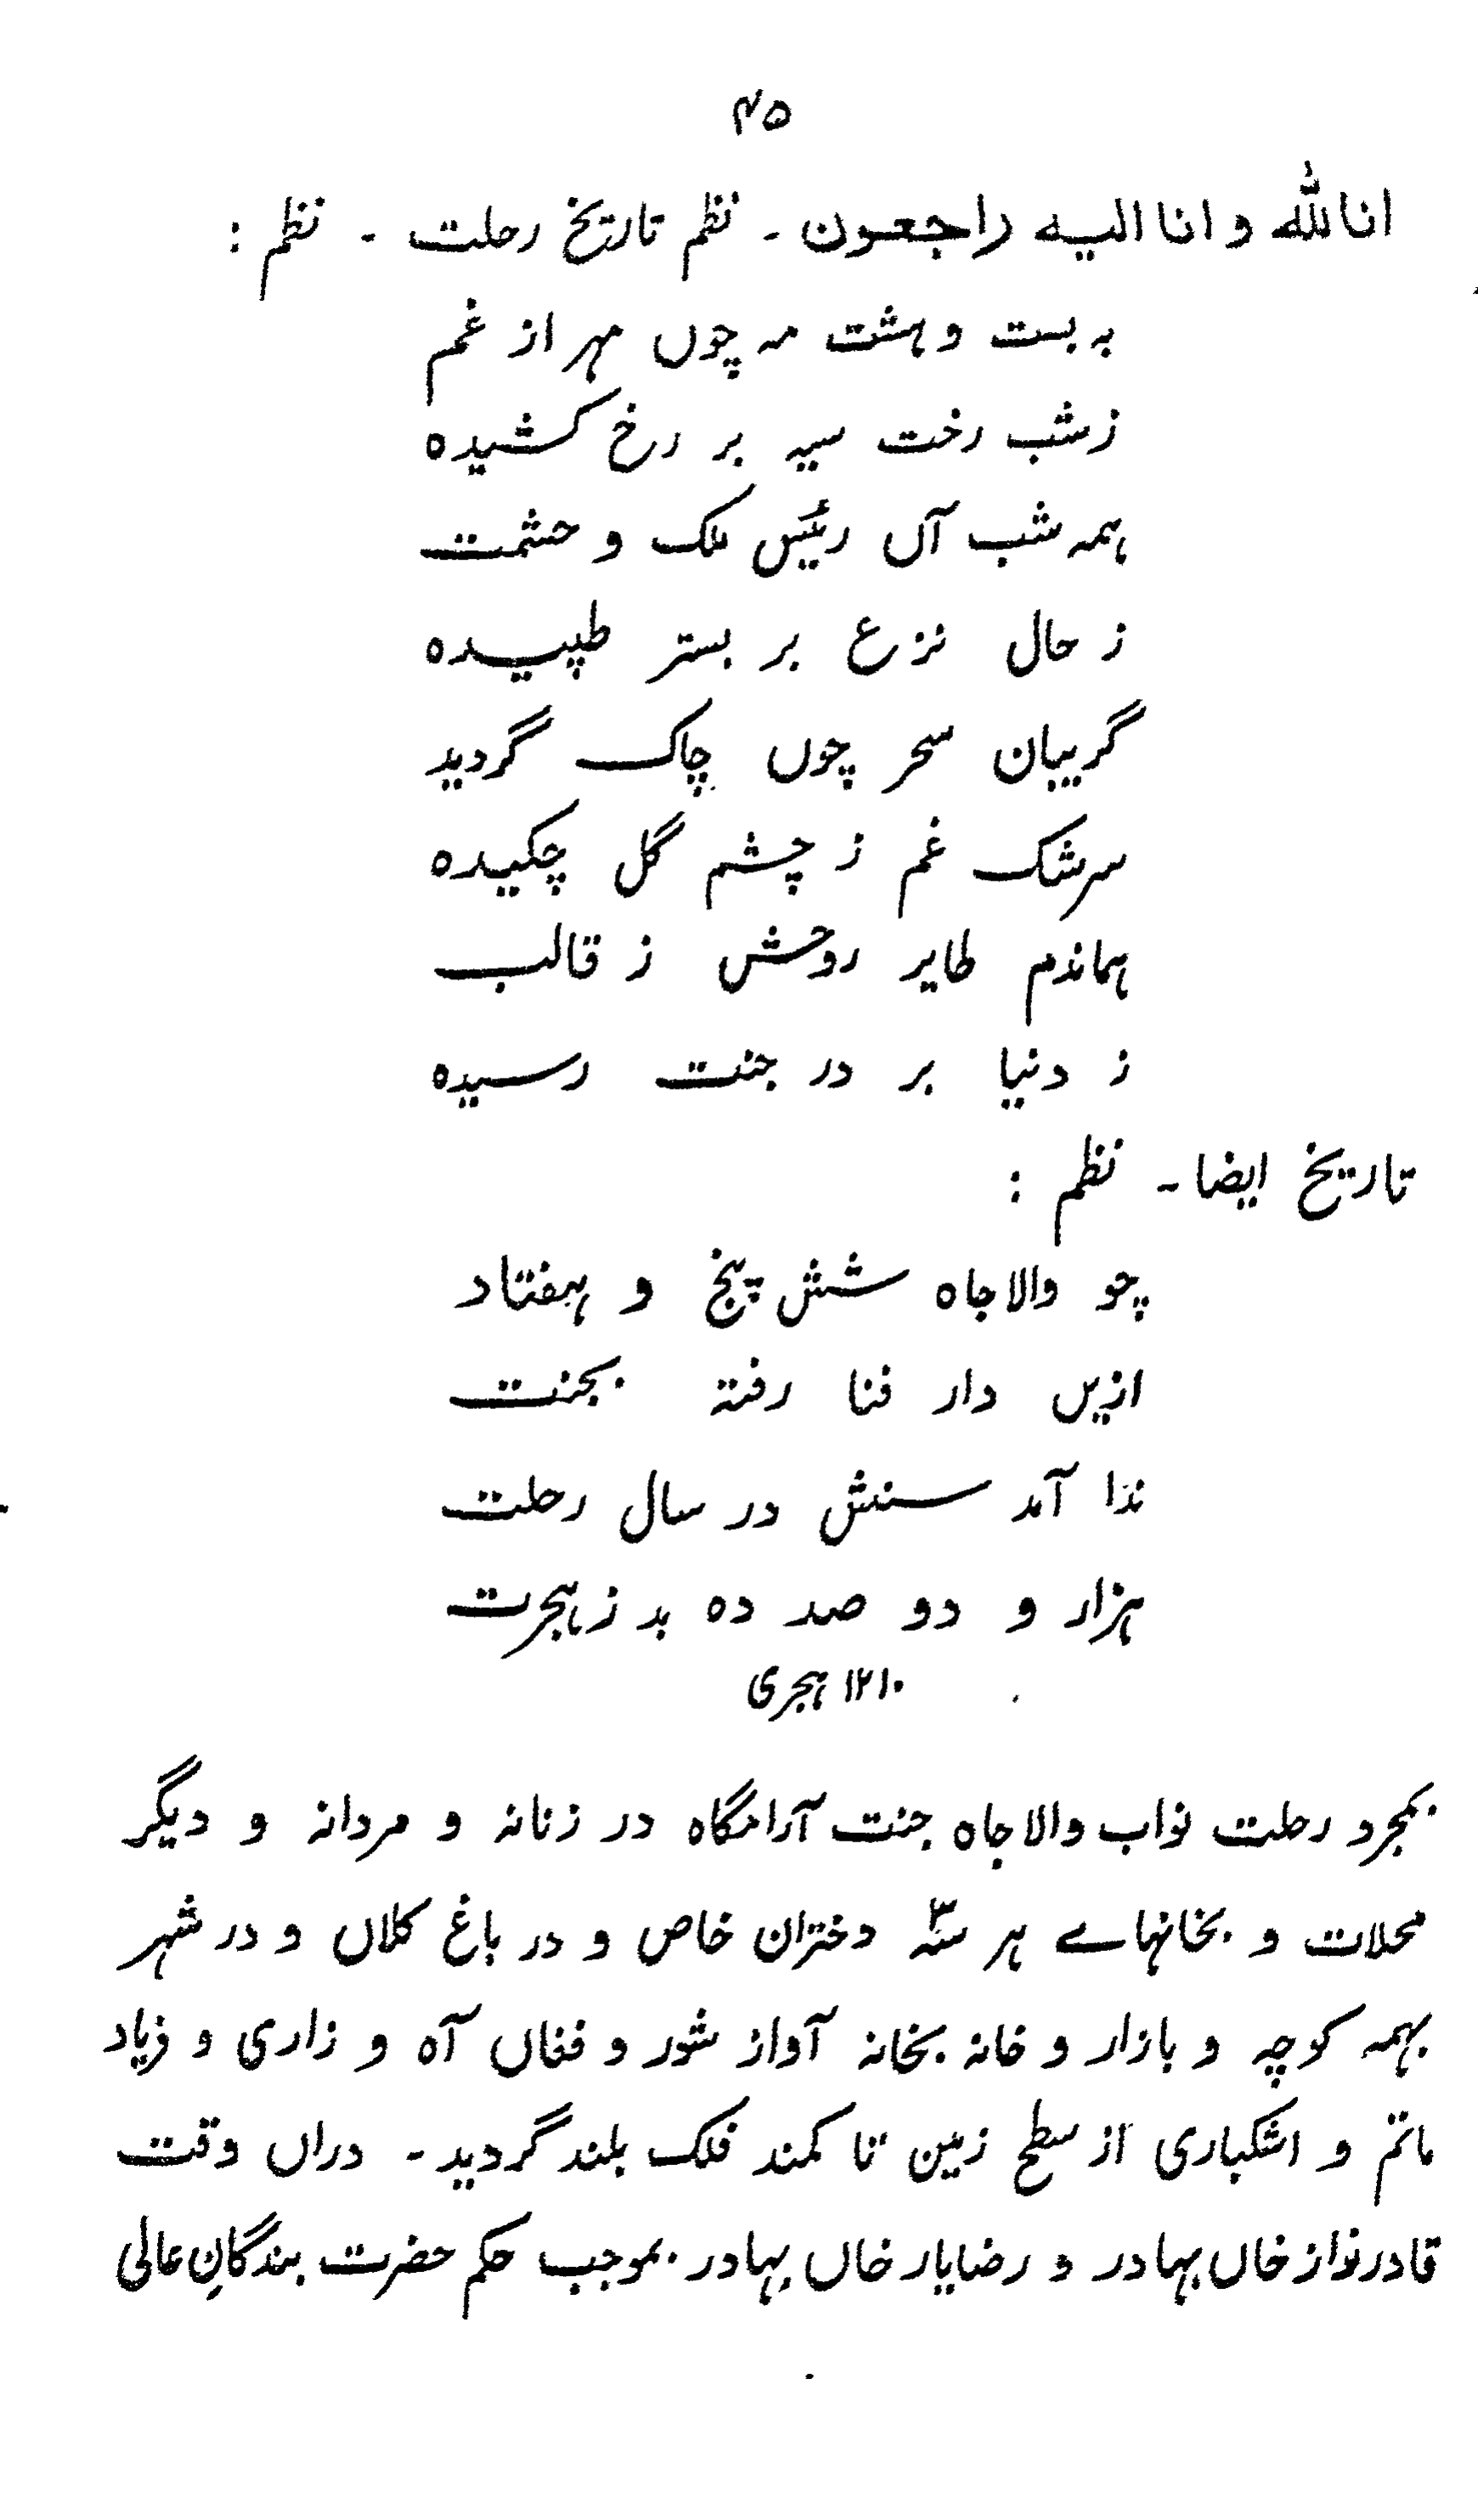 ۴۵
انا لله و انا الیه راجعون ۔ نظم تاریخ رحلت ۔ نظم :
بہ بست و ہشت مہ چوں مہر از غم
ز شب رخت سیہ بر رخ کشیدہ
ہمہ شب آں رئیس ملک و حشمت
ز حال نزع بر بستر طپیدہ
گریبان سحر چوں چاک گردید
سرشک غم ز چشم گل چکیدہ
ہماندم طایر روحش ز قالب
ز دنیا بر در جنت رسیدہ
تاریخ ایضا ۔ نظم :
چو والاجاہ شش پنج و ہفتاد
ازیں دار فنا رفتہ بجنت
ندا آمد سنش در سال رحلت
ہزار و دو صد دہ بد ز ہجرت
۱۲۱۰ ہجری
بمجرد رحلت نواب والاجاہ جنت آرامگاہ در زنانہ و مردانہ و دیگر
محلات و بخانہاے ہر سہ دختران خاص و در باغ کلاں و در شہر
بہمہ کوچہ و بازار و خانہ بخانہ آواز شور و فغاں آہ و زاری و فریاد
ماتم و اشکباری از سطح زمین تا کمند فلک بلند گردید ۔ دراں وقت
قادر نواز خاں بہادر و رضا یار خاں بہادر بموجب حکم حضرت بندگانِ عالی